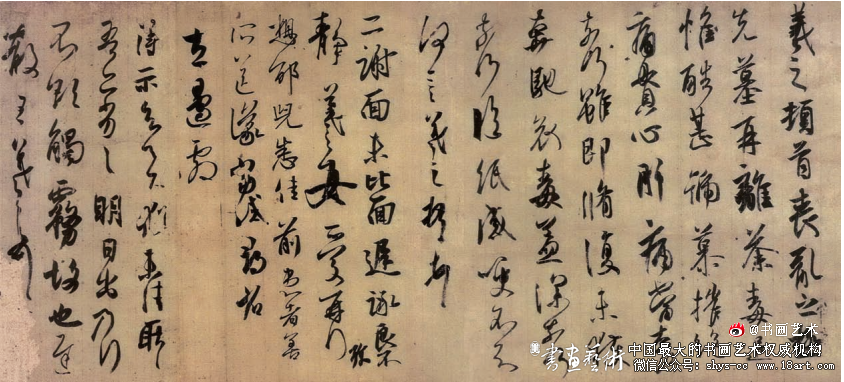 羲之頓首喪亂之極
先墓再離荼毒追
惟酷甚號慕摧絕
痛貫心肝痛當奈何
奈何雖即脩復未獲
奔馳哀毒益深奈何
奈何臨紙感哽不知
何言羲之頓首頓首
二謝面未比面遲詠良不
靜羲之女愛再拜
想邵兒悉佳前患者善
所送議當試尋省
左邊劇
得示知足下猶未佳耿耿
吾亦劣劣明日出乃行
不欲觸霧故也遲
散王羲之頓首
@书画艺术
書畫藝術 中国最大的书画艺术权威机构
微信公众号: shys-cc www.18art.com